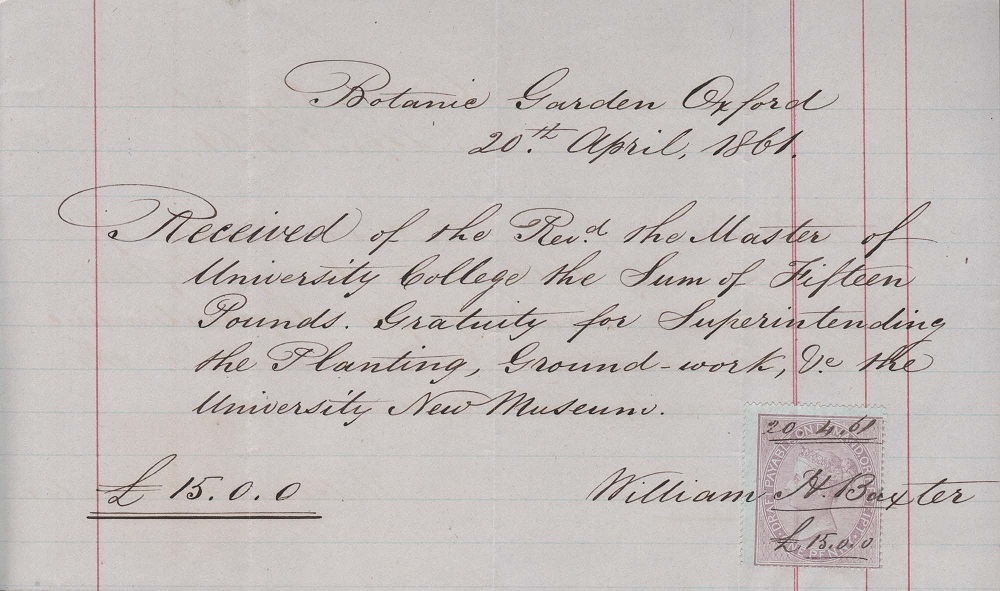 Botanic Garden Oxford
20.th April, 1861.
Received of the Revd. the Master of
University College the Sum of Fifteen
Pounds. Gratuity for Superintending
the Planting, Ground-work, &c the
University New Museum.
£ 15.0.0
William H. Baxter
20 4.61
DRAFT PAYABLE ON DEMAND OR RECEIPT
ONE PENNY
£ 15.0.0